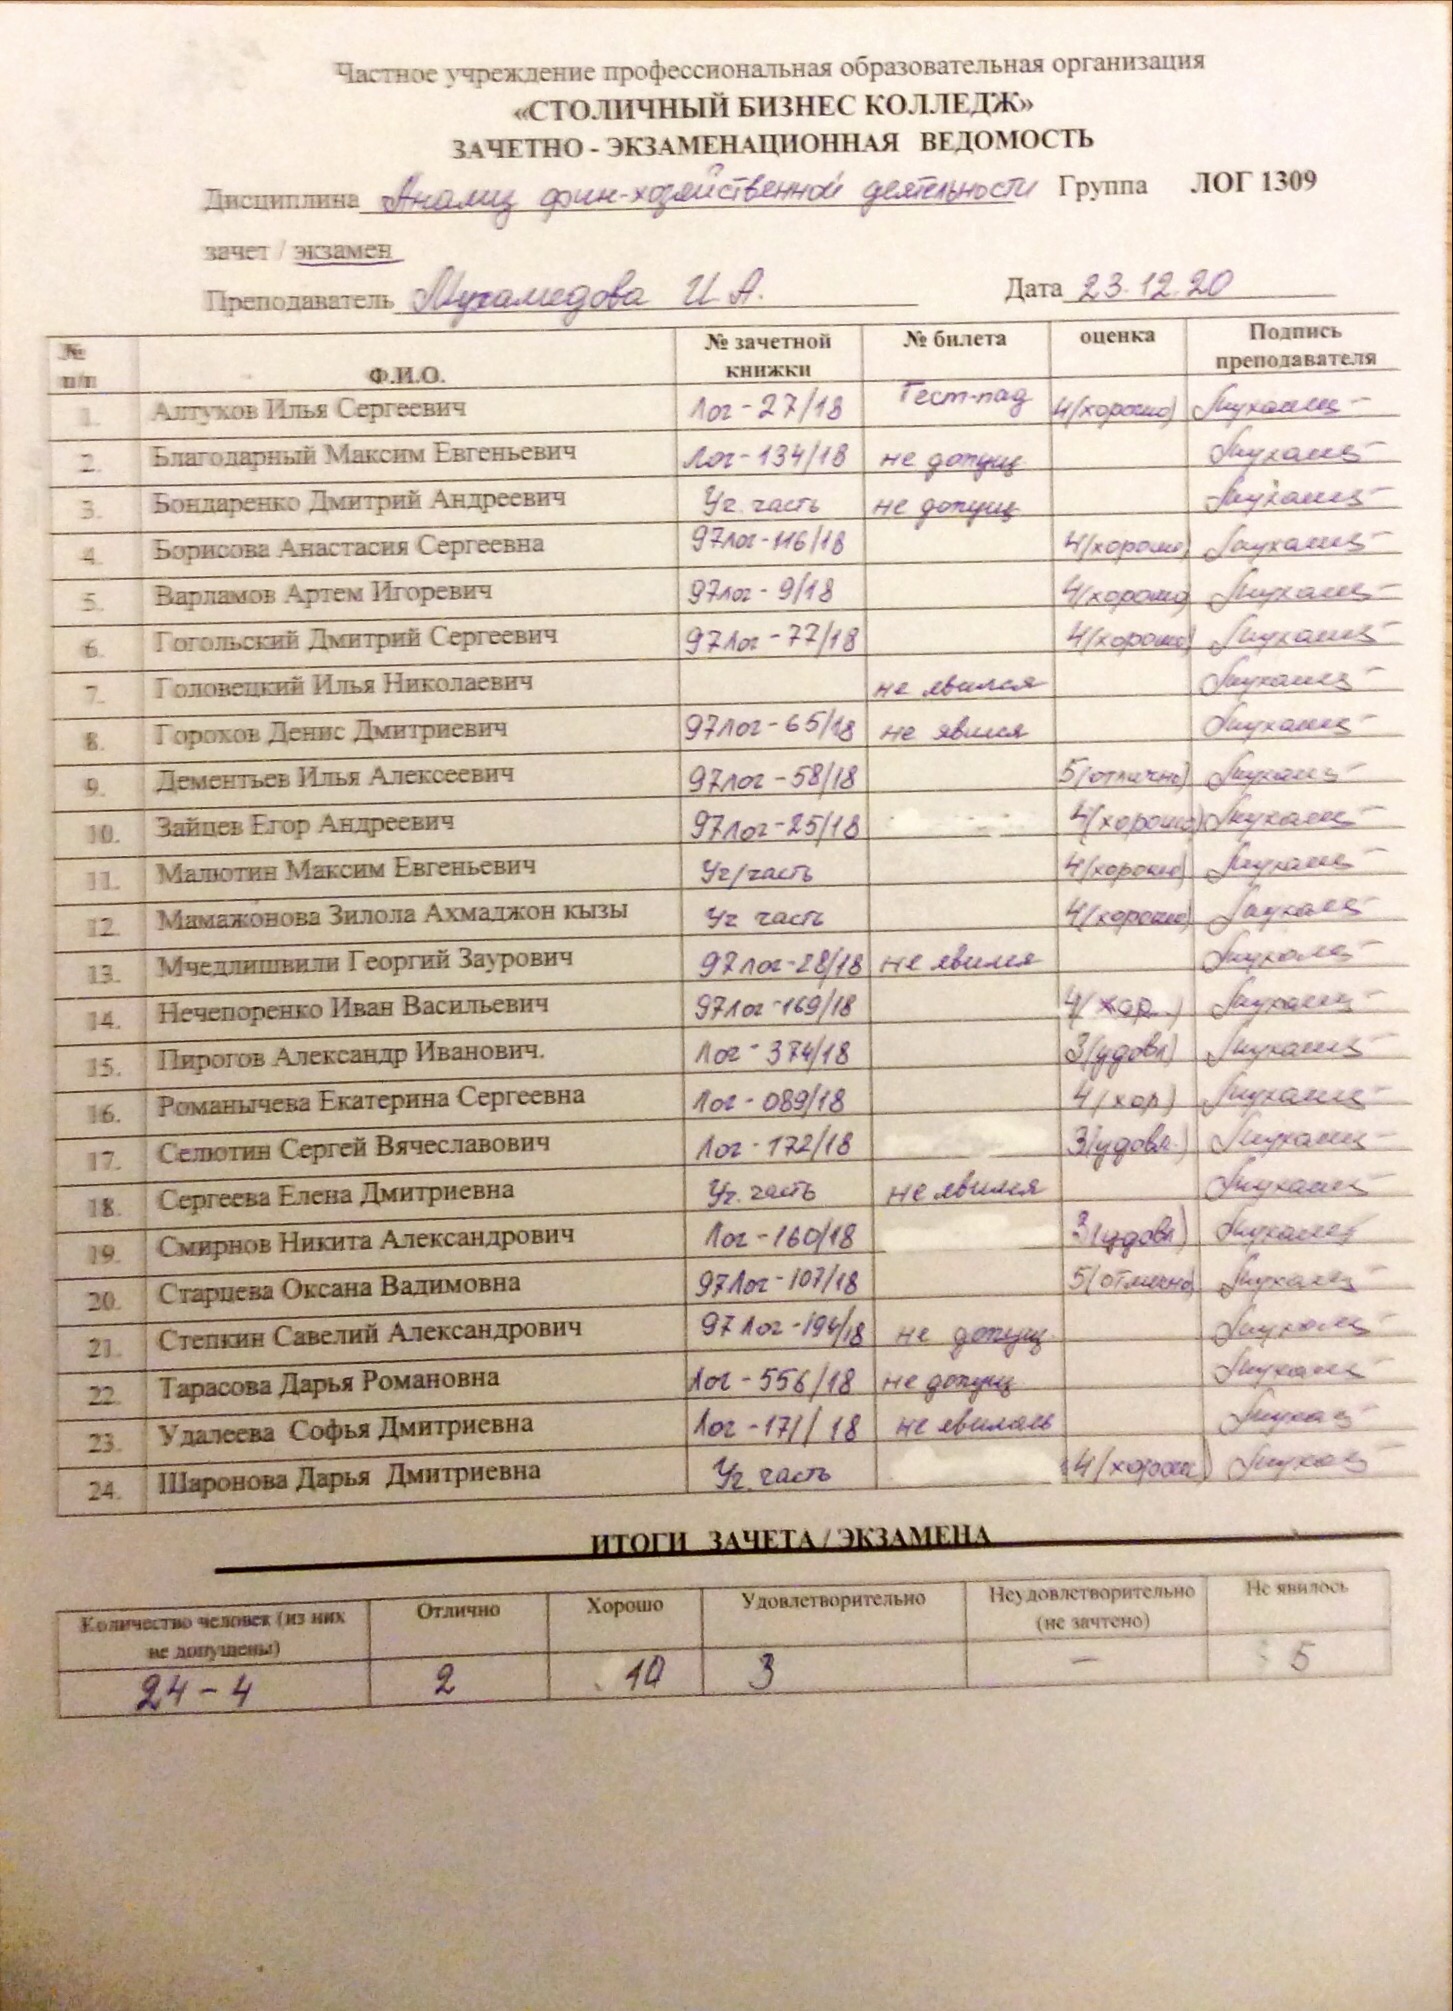 Частное учреждение профессиональная образовательная организация
«СТОЛИЧНЫЙ БИЗНЕС КОЛЛЕДЖ»
ЗАЧЕТНО - ЭКЗАМЕНАЦИОННАЯ ВЕДОМОСТЬ
Дисциплина Анализ фин-хозяйственной деятельности Группа ЛОГ 1309
зачет / экзамен
Преподаватель Мухамедова И А. Дата 23.12.20
№ п/п Ф.И.О. № зачетной книжки № билета оценка Подпись преподавателя
1. Алтухов Илья Сергеевич Лог-27/18 Тест-пад 4(хорошо)
2. Благодарный Максим Евгеньевич Лог-134/18 не допущ
3. Бондаренко Дмитрий Андреевич Уч. часть не допущ
4. Борисова Анастасия Сергеевна 97Лог-116/18 4(хорошо)
5. Варламов Артем Игоревич 97Лог-9/18 4(хорошо)
6. Гогольский Дмитрий Сергеевич 97Лог-77/18 4(хорошо)
7. Головецкий Илья Николаевич не явился
8. Горохов Денис Дмитриевич 97Лог-65/18 не явился
9. Дементьев Илья Алексеевич 97Лог-58/18 5(отлично)
10. Зайцев Егор Андреевич 97Лог-25/18 4(хорошо)
11. Малютин Максим Евгеньевич Уч/часть 4(хорошо)
12. Мамажонова Зилола Ахмаджон кызы Уч часть 4(хорошо)
13. Мчедлишвили Георгий Заурович 97Лог-28/18 не явился
14. Нечепоренко Иван Васильевич 97Лог-169/18 4(хор.)
15. Пирогов Александр Иванович. Лог-374/18 3(удовл)
16. Романычева Екатерина Сергеевна Лог-089/18 4(хор)
17. Селютин Сергей Вячеславович Лог-172/18 3(удовл.)
18. Сергеева Елена Дмитриевна Уч. часть не явился
19. Смирнов Никита Александрович Лог-160/18 3(удовл)
20. Старцева Оксана Вадимовна 97Лог-107/18 5(отлично)
21. Степкин Савелий Александрович 97Лог-194/18 не допущ.
22. Тарасова Дарья Романовна Лог-556/18 не допущ
23. Удалеева Софья Дмитриевна Лог-171/18 не явилась
24. Шаронова Дарья Дмитриевна Уч. часть 4(хорош)
ИТОГИ ЗАЧЕТА / ЭКЗАМЕНА
Количество человек (из них не допущены) Отлично Хорошо Удовлетворительно Неудовлетворительно (не зачтено) Не явилось
24-4 2 10 3 - 5